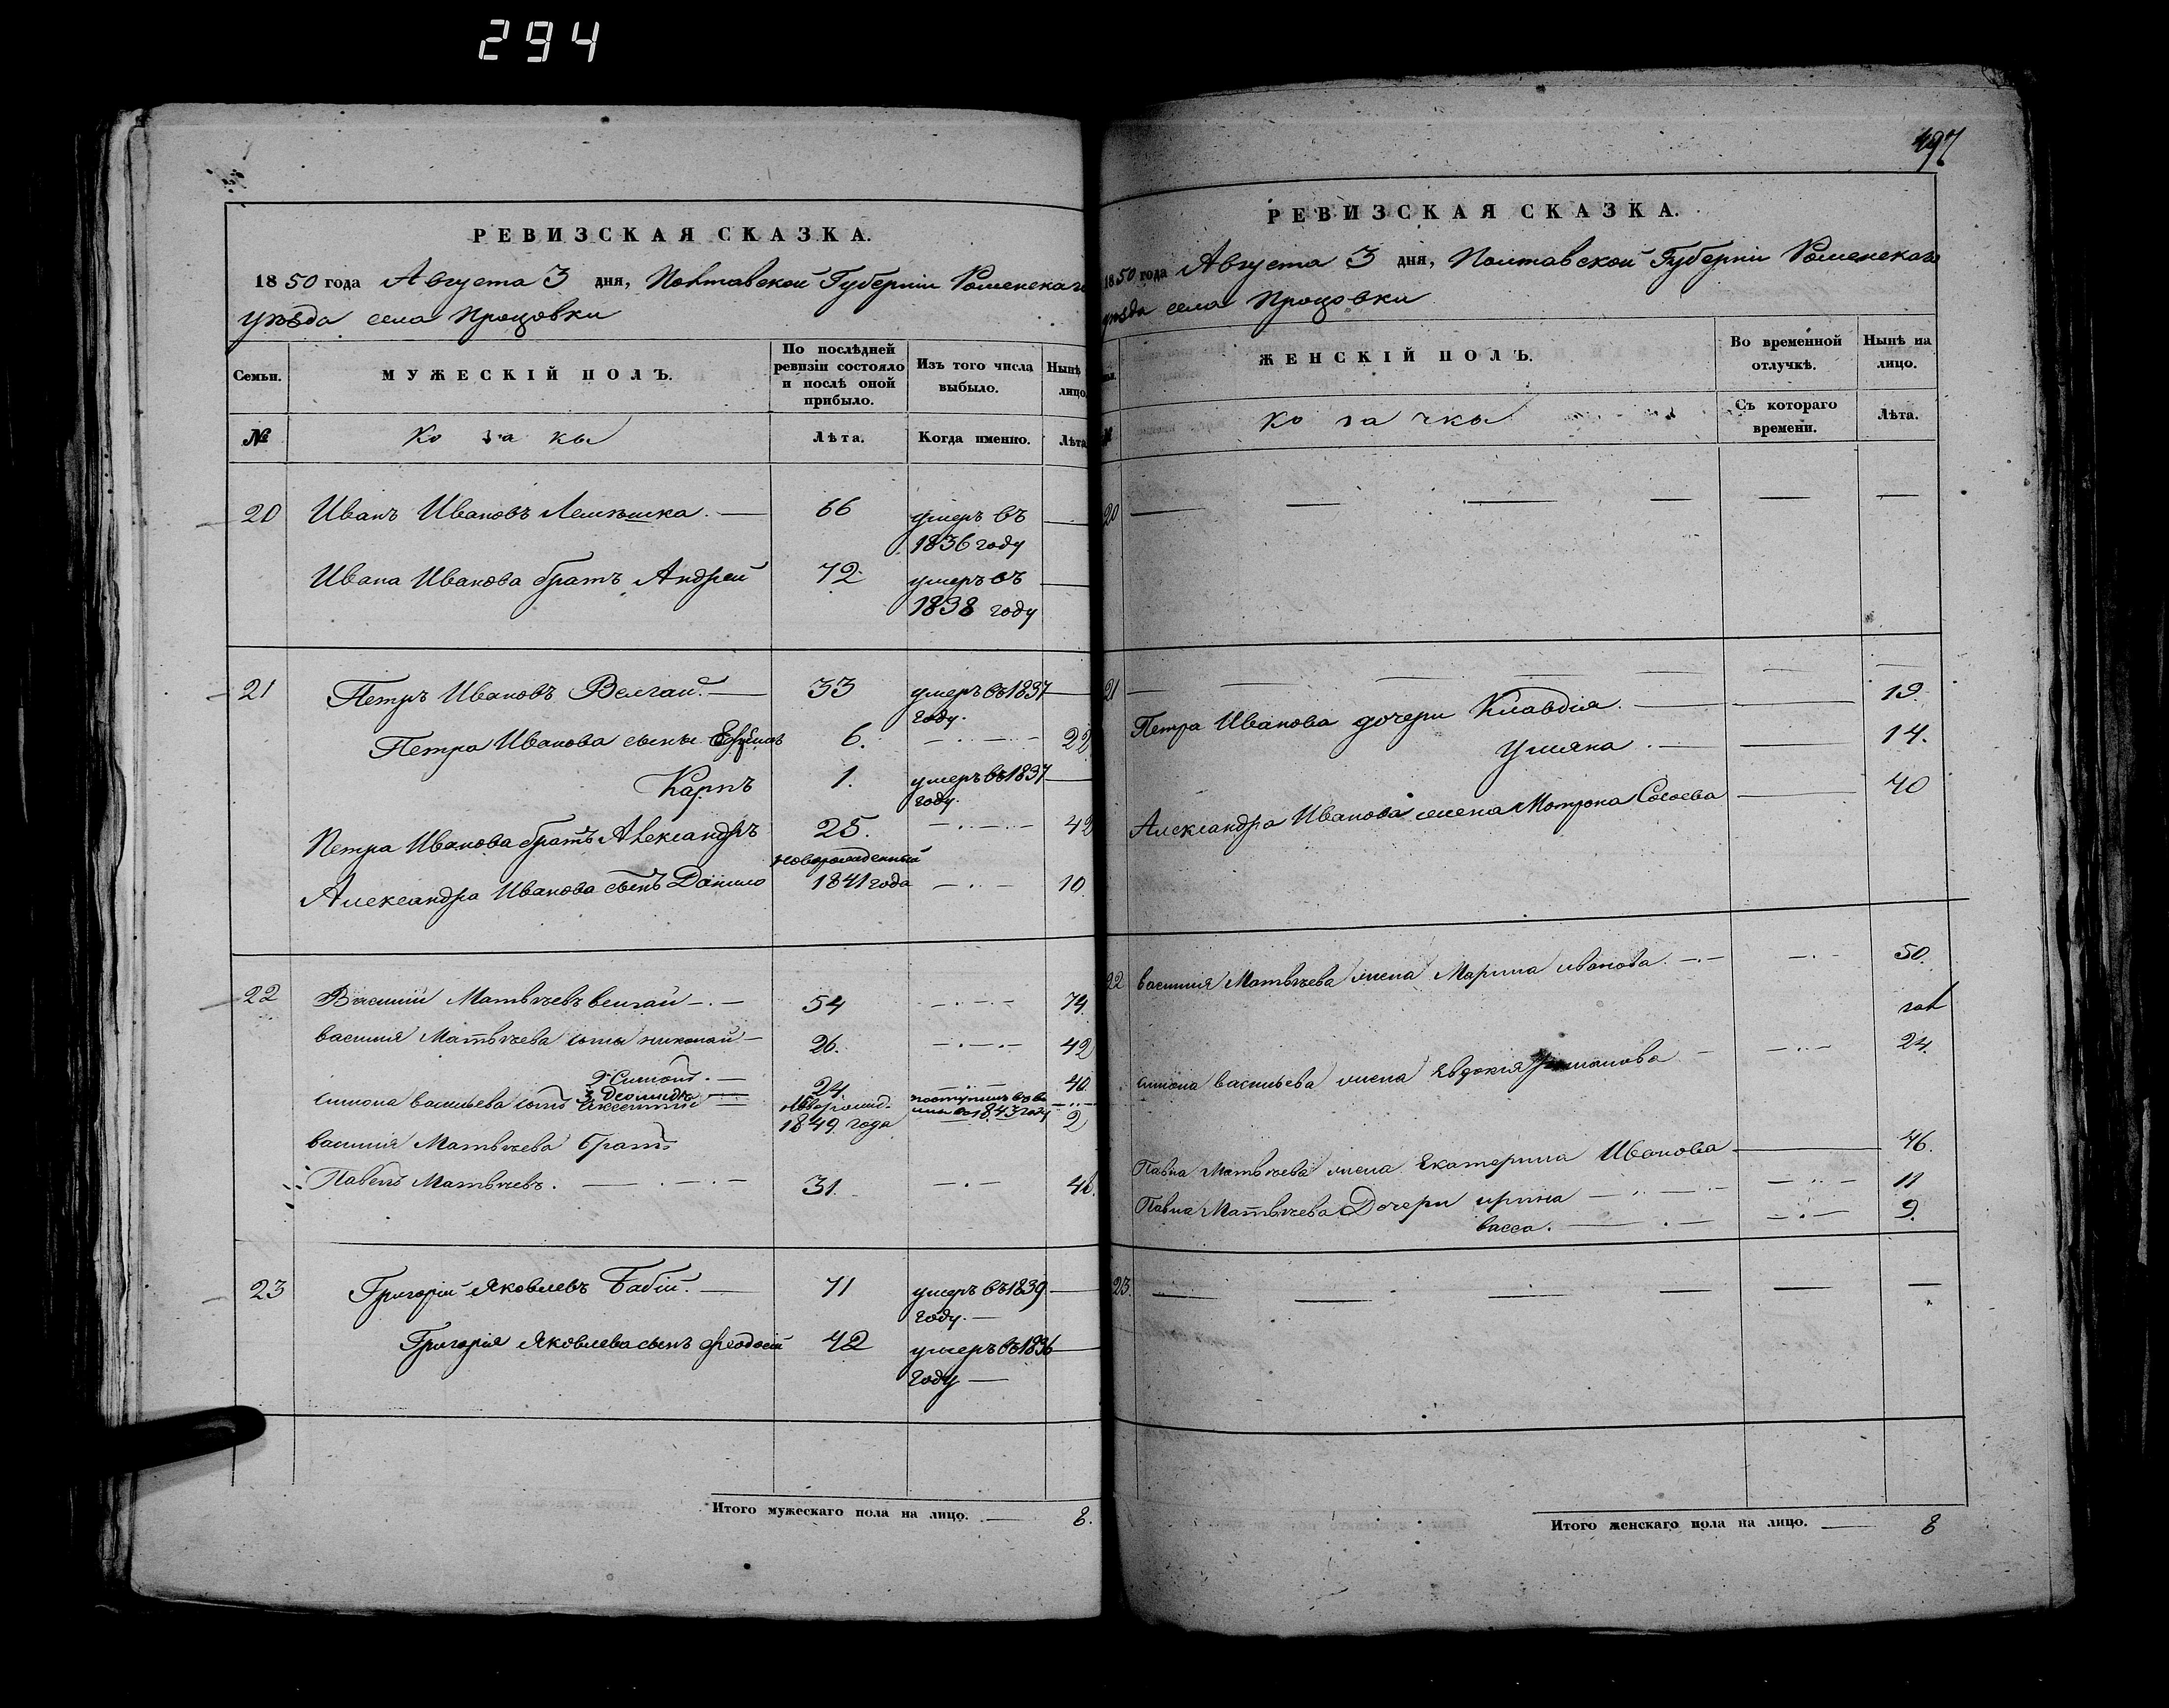 294
РЕВИЗСКАЯ СКАЗКА.
1850 года Августа 3 дня, Полтавской Губерніи Роменскаго
уѣзда села Процовки
Семьи.
МУЖЕСКІЙ ПОЛЪ.
По послѣдней ревизіи состояло и послѣ оной прибыло.
Изъ того числа выбыло.
Нынѣ лицо.
№
Козаки
Лѣта.
Когда именно.
Лѣта
20 Иванъ Ивановъ Лемѣшка. — 66 умеръ въ —
1836 году
Ивана Иванова братъ Андрей 72 умеръ въ —
1838 году
21 Петръ Ивановъ Велгай. — 33 умеръ въ 1837 —
году.
Петра Иванова сыны Ефремъ 6. 22
Карпъ 1. умеръ въ 1837 —
году.
Петра Иванова братъ Александръ 25. 42
новорожденный
Александра Иванова сынъ Данило 1841 года 10
22 Василий Матвѣевъ велгай 54 74.
василия Матвѣева сыны николай 26. 42
2. Симонъ. 24 40.
3 Деомидъ
симона васильева сынъ
1849. года 2
василия Матвѣева братъ
Павелъ Матвѣевъ. 31.
23 Григорій Яковлевъ Бабій. — 71 умеръ въ 1839 —
году. —
Григорія Яковлева сынъ Феодосій 42 умеръ въ 1836 —
году —
Итого мужескаго пола на лицо. — 8.
497
РЕВИЗСКАЯ СКАЗКА.
1850 года Августа 3 дня, Полтавской Губерніи Роменскаго
уѣзда села Процовки
ЖЕНСКІЙ ПОЛЪ.
Во временной отлучкѣ.
Нынѣ на лицо.
№
Козачки
Съ котораго времени.
Лѣта.
20 — — — — — —
21 — — — — — —
Петра Иванова дочери Клавдія. — 19.
Уляна. — 14.
Александра Иванова жена Мотрона Сысоева — 40
22 василия Матвѣева жена Марина иванова. 50.
симона васильева жена Евдокия 24.
Павла Матвѣева жена Екатерина Иванова — 46.
Павла Матвѣева Дочери ирина 11
васса. 9.
23. — — — — —
Итого женскаго пола на лицо. — 8